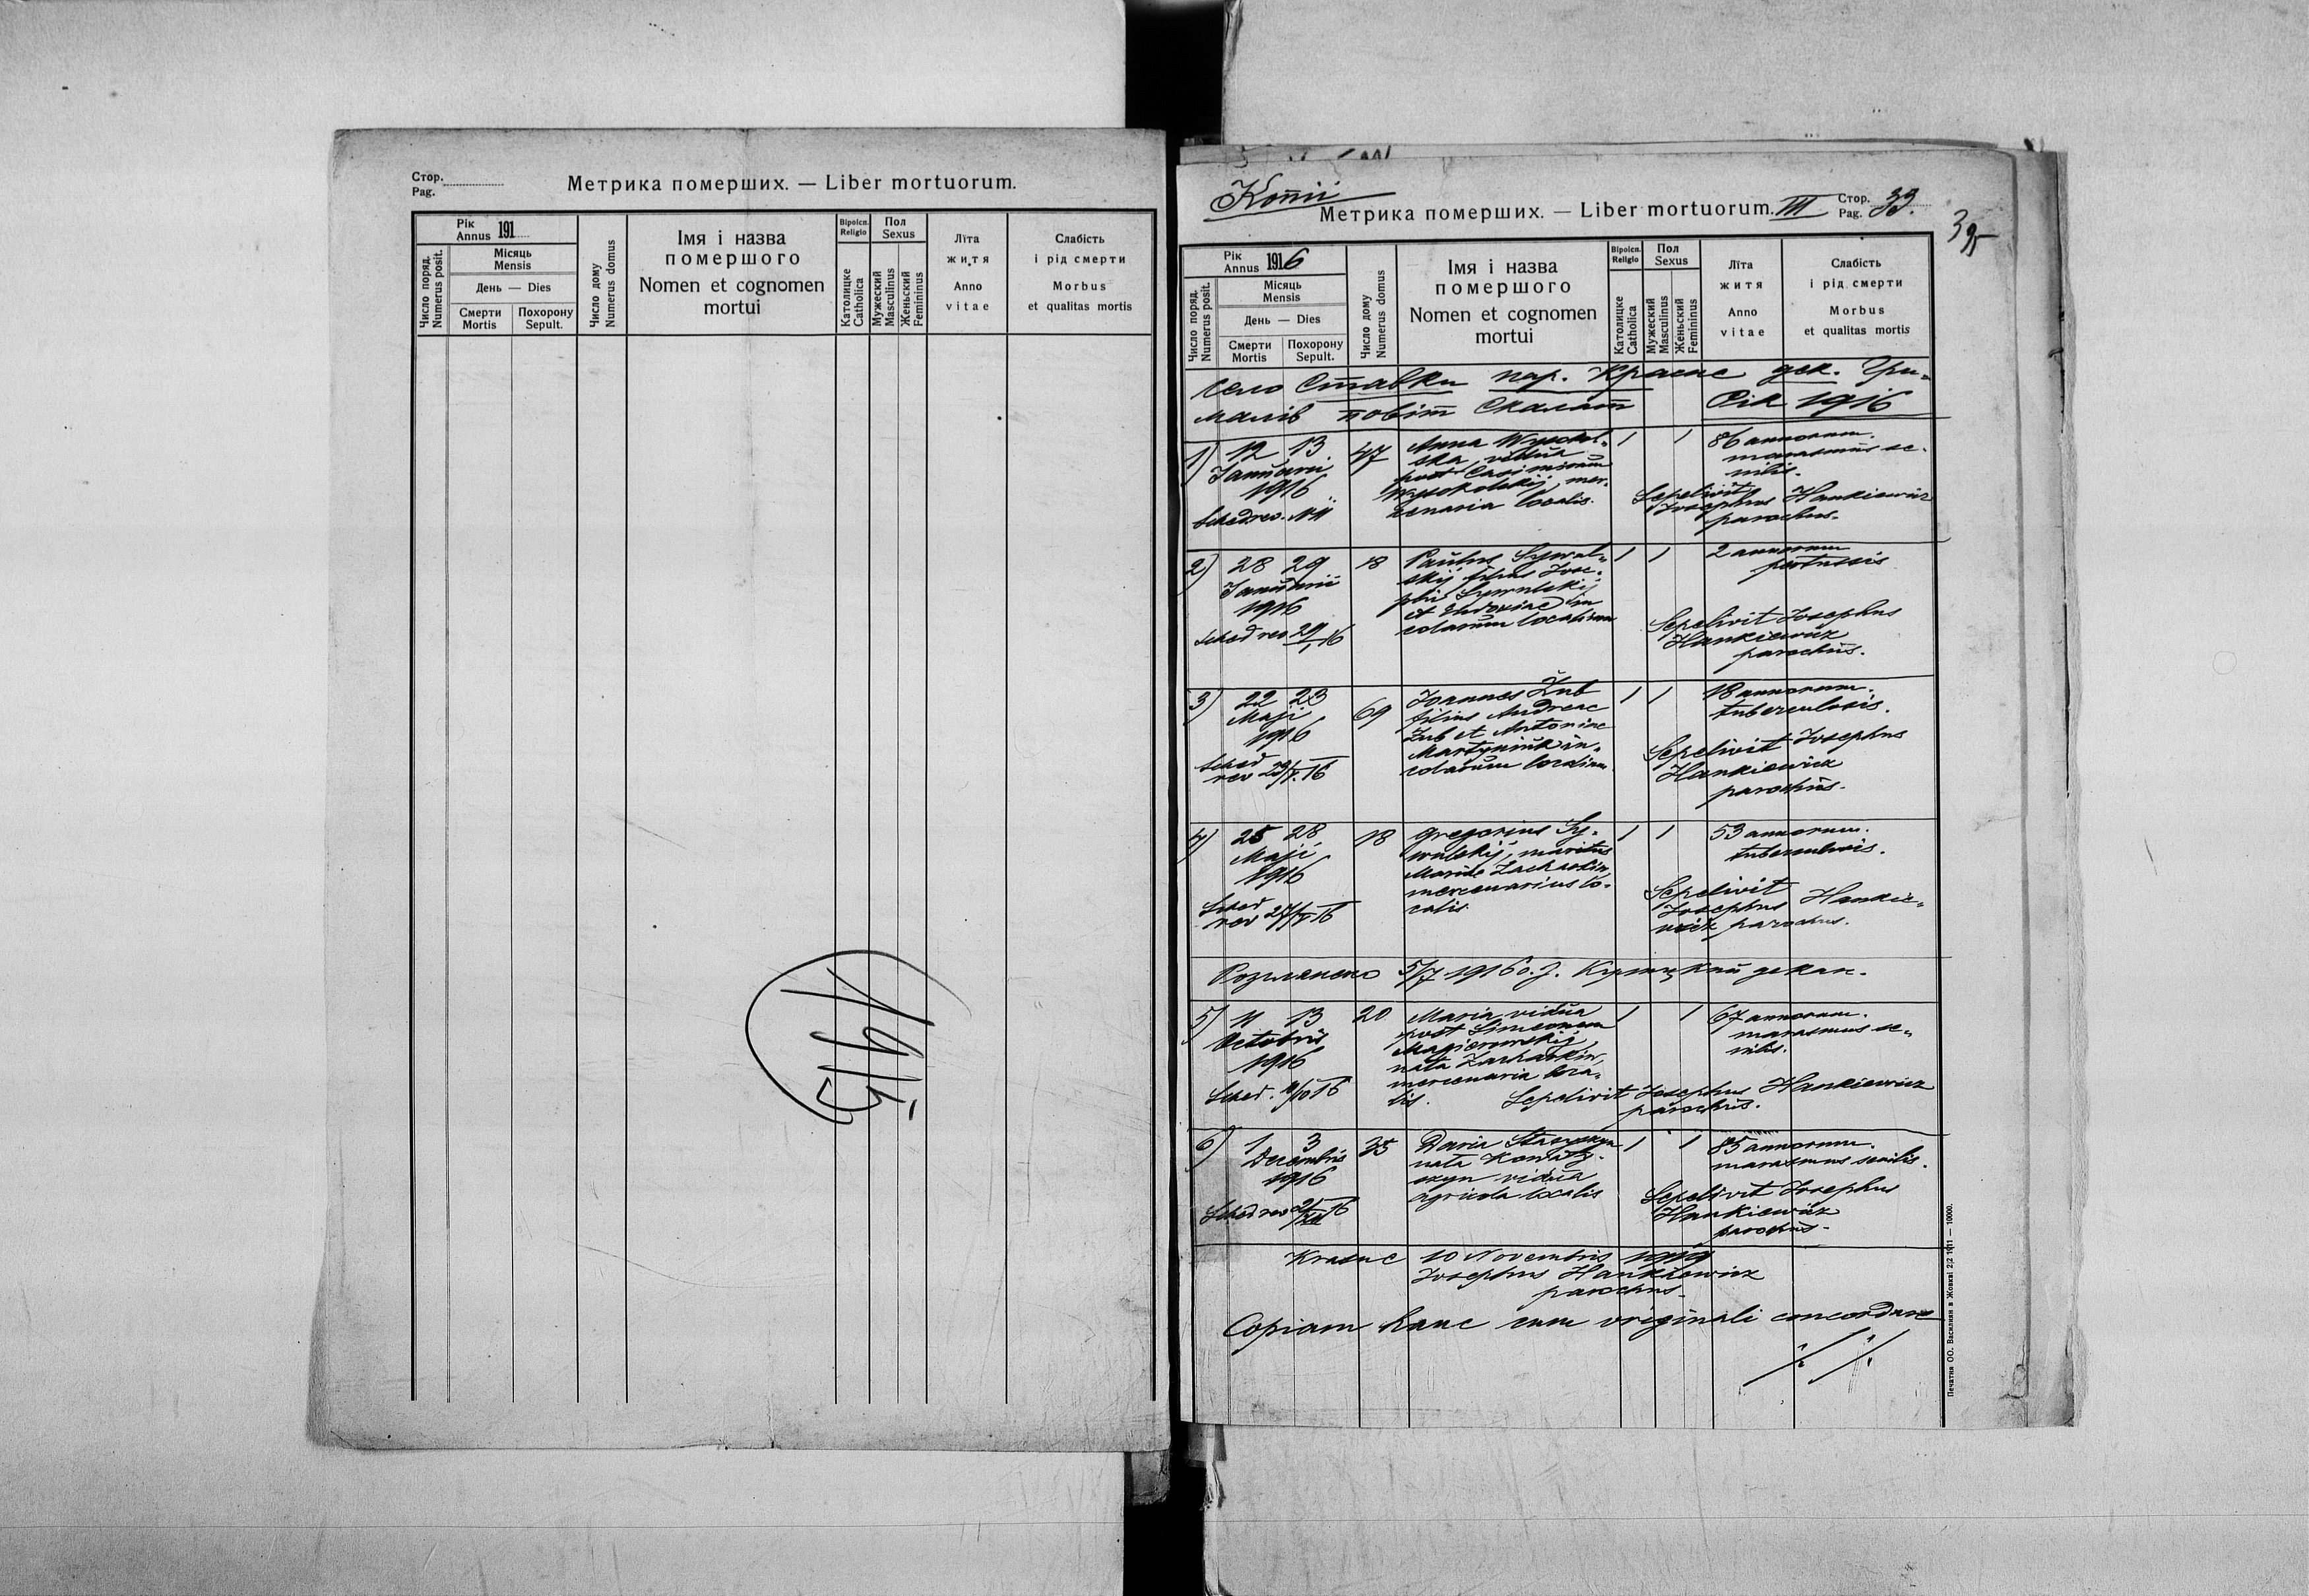 Стор.
Pag.
Метрика померших. — Liber mortuorum.
Рік
Annus 191
Число поряд.
Numerus posit.
Місяць
Mensis
День — Dies
Смерти
Mortis
Похорону
Sepult.
Число дому
Numerus domus
Імя і назва
помершого
Nomen et cognomen
mortui
Віроісп.
Religio
Католицке
Catholica
Пол
Sexus
Мужеский
Masculinus
Женьский
Femininus
Лїта
житя
Anno
vitae
Слабість
і рід смерти
Morbus
et qualitas mortis
1915
Копії
Метрика померших. — Liber mortuorum. III
Стор.
Pag. 33.
395
Рік
Annus 1916
Число поряд.
Numerus posit.
Місяць
Mensis
День — Dies
Смерти
Mortis
Похорону
Sepult.
Число дому
Numerus domus
Імя і назва
помершого
Nomen et cognomen
mortui
Віроісп.
Religio
Католицке
Catholica
Пол
Sexus
Мужеский
Masculinus
Женьский
Femininus
Лїта
житя
Anno
vitae
Слабість
і рід смерти
Morbus
et qualitas mortis
село Ставки пар. Красне дек. Гри-
малів повіт Скалат Рік 1916
1) 12 13 47
Januarii
1916
Sched rev.
Anna Wysokol-
ska, vidua
post Casimirum
Wysokolskij, mer-
cenaria localis.
1 1 86 annorum.
marasmus se-
nilis.
Sepelivit
Josephus Hankiewicz
parochus.
2) 28 29 18
Januarii
1916
Sched rev 29/I 16
Paulus Sywul-
skij filius Jose-
phi Sywulskij
et Eudoxiae in-
colarum localium
1 1 2 annorum
pertussis
Sepelivit Josephus
Hankiewicz
parochus.
3) 22 23 69
Maji
1916
Sched
rev 23/V. 16
Joannes Zub
filius Andreae
Zub et Antoninae
Martyniuk in-
colarum localium.
1 1 18 annorum.
tuberculosis.
Sepelivit Josephus
Hankiewicz
parochus.
4) 25 28 18
Maji
1916
Sched
rev 27/V 16
Gregorius Sy-
wulskij, maritus
Mariae Zacharkin,
mercenarius lo-
calis.
1 1 53 annorum.
tuberculosis.
Sepelivit
Josephus Hankie-
wicz parochus.
Розглянено 5/7 1916 о. J. декан.
5) 11 13 20
Octobris
1916
Sched. 11/10 16
Maria vidua
post Simeonem
Magierowskij,
nata Zacharkin,
mercenaria loca-
lis.
1 1 67 annorum.
marasmus se-
nilis.
Sepelivit Josephus Hankiewicz
parochus.
6) 1 3 35
Decembris
1916
Sched rev 2/XII 16
Daria
nata Kowal-
vidua
agricola localis
1 1 85 annorum.
marasmus senilis.
Sepelivit Josephus
Hankiewicz
parochus.
Krasne 10 Novembris 1919
Josephus Hankiewicz
parochus.
Copiam hanc cum originali concordare
·/· ·/·
Печатня ОО. Василиян в Жовкві 2|2 1911 — 10000.